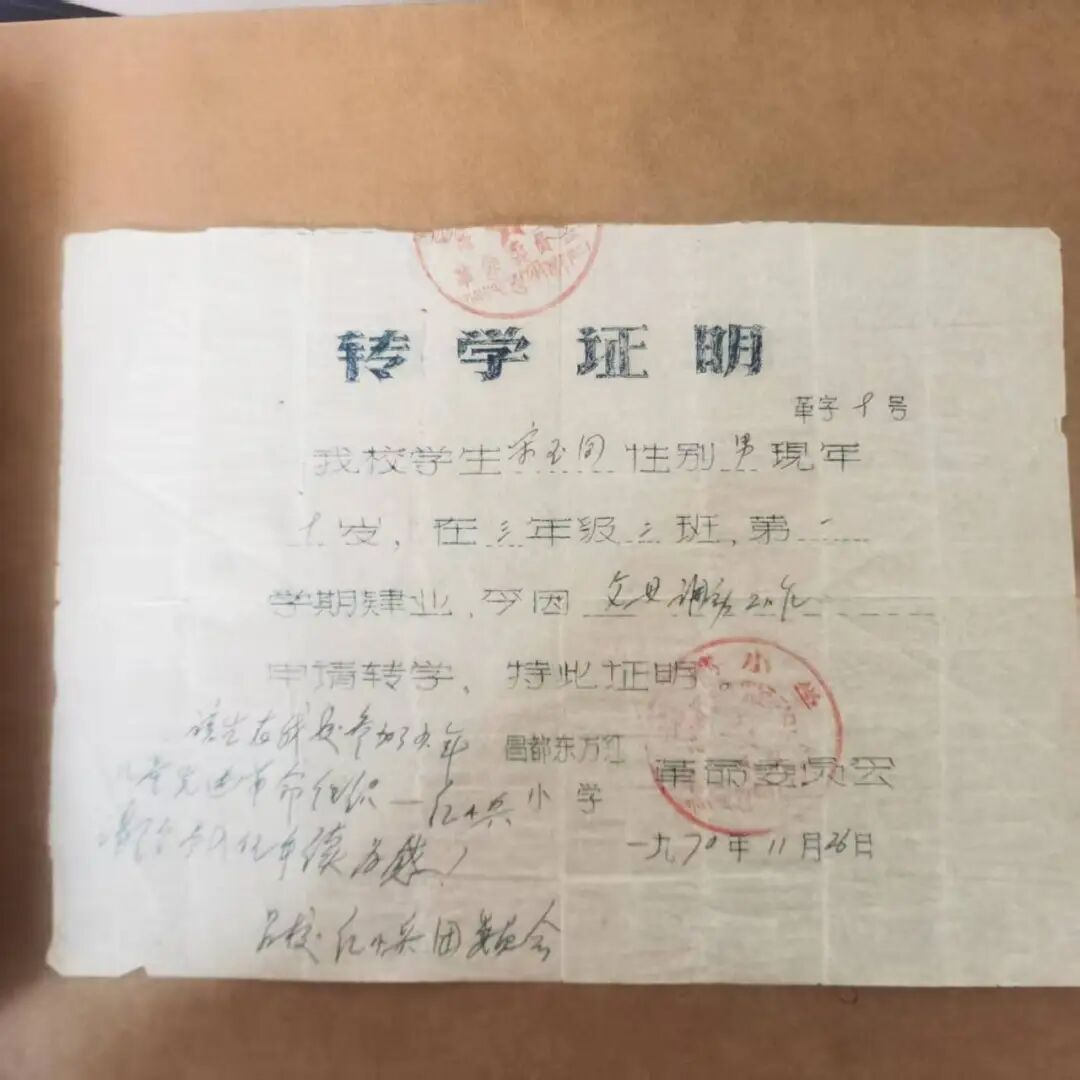 革命委员会
转学证明
革字十号
我校学生宋玉同性别男现年
十岁,在三年级三班,第一
学期肄业,今因父母调动工作
申请转学,特此证明
小学
该生在我校参加了少年
儿童先进革命组织—红小兵
昌都东方红
小学
革命委员会
一九七〇年11月26日
请给予办理手续为感!
呂校红小兵团委员会